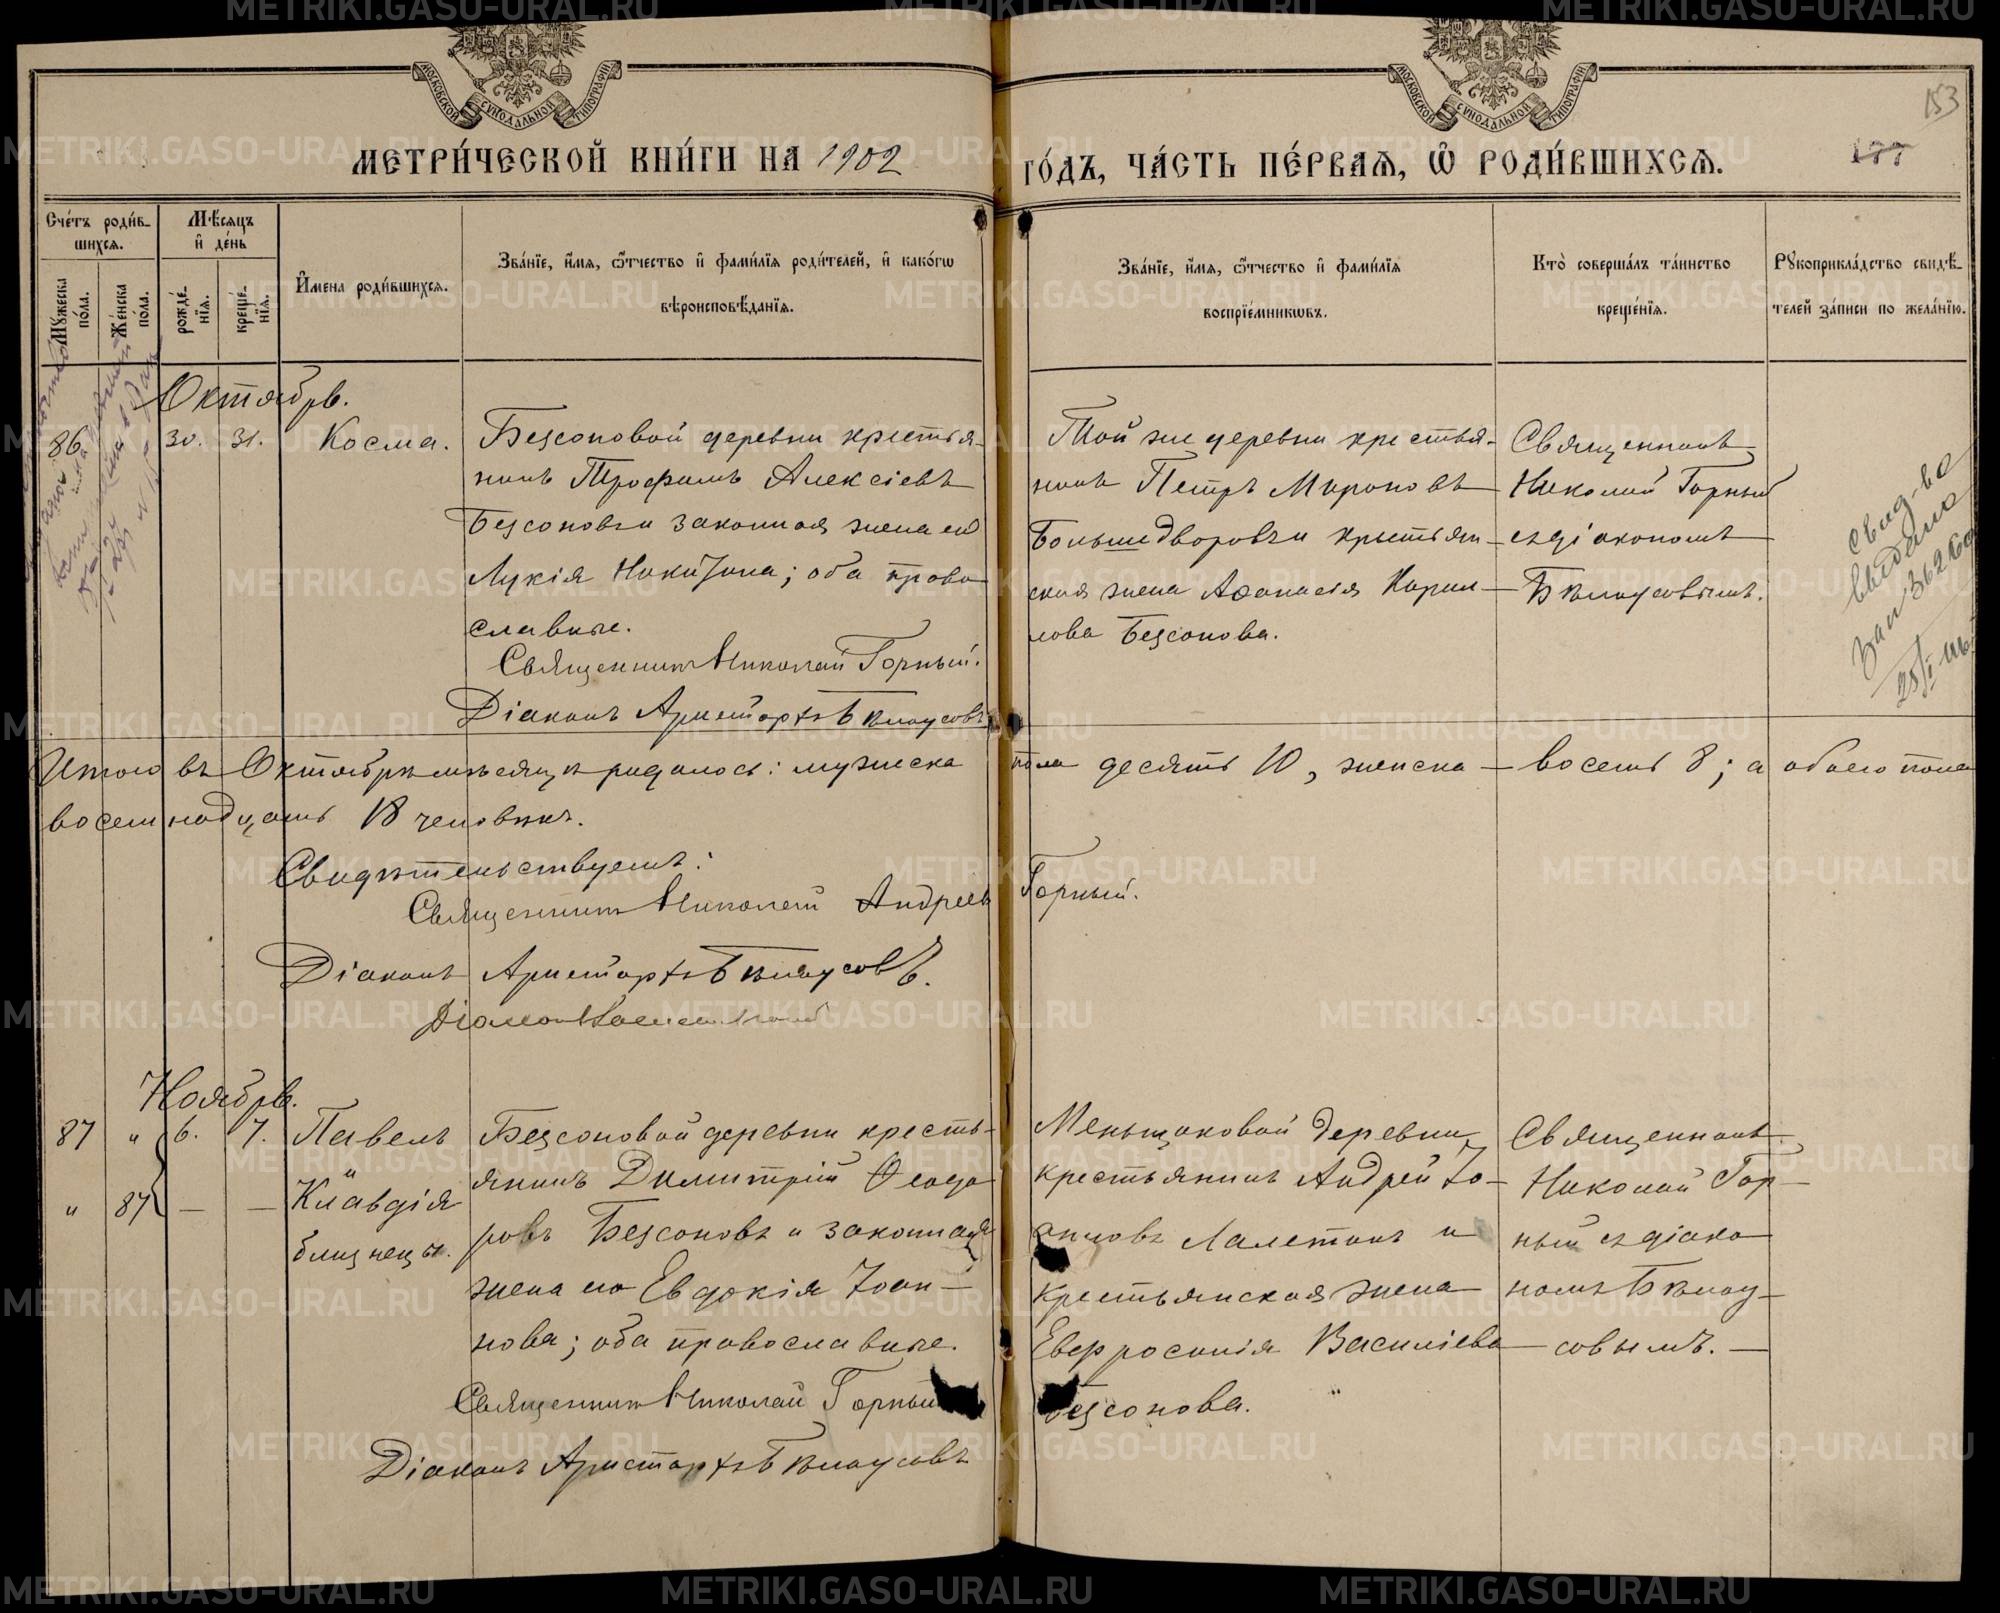 МЕТРИ́ЧЕСКОЙ КНИ́ГИ НА 1902
ГО́ДЪ, ЧА́СТЬ ПЕ́РВАѦ, Ѡ҃ РОДИ́ВШИХСѦ.
153
177
МОСКОВСКОЙ СУНОДАЛЬНОЙ ТИПОГРАФІИ
МОСКОВСКОЙ СУНОДАЛЬНОЙ ТИПОГРАФІИ
Сче́тъ роди́в-
шихсѧ.
Мѣ́сѧцъ
и҆ де́нь
Му́жеска
по́ла.
Же́нска
по́ла.
рожде́-
нїѧ.
креще́-
нїѧ.
И҆мена роди́вшихсѧ.
Зва́нїе, и҆́мѧ, ѻ҆́тчество и҆ фами́лїѧ роди́телей, и҆ како́гѡ
вѣроисповѣ́данїѧ.
Зва́нїе, и҆́мѧ, ѻ҆́тчество и҆ фами́лїѧ
воспрїе́мникѡвъ.
Кто̀ соверша́лъ та́инство
креще́нїѧ.
Рꙋкоприкла́дство свидѣ́-
телей за́писи по жела́нїю.
Октябрь.
86. 30. 31. Косма.
Безсоновой деревни крестья-
нинъ Трофимъ Алексіевъ
Безсоновъ и законная жена его
Лукія Никитина; оба право-
славные.
Священникъ Николай Горный.
Діаконъ Аристархъ Бѣлоусовъ
Той же деревни крестья-
нинъ Петръ Мироновъ
Большедворовъ и крестьян-
ская жена Аѳанасія Кирил-
лова Безсонова.
Священникъ
Николай Горный
съ діакономъ
Бѣлоусовымъ.
Свид-во
выдано
за № 3626
Итого въ Октябрѣ мѣсяцѣ родилось: мужеска пола десять 10, женска – восемь 8; а обоего пола
восемнадцать 18 человѣкъ.
Свидѣтельствуемъ:
Священникъ Николай Андреевъ Горный.
Діаконъ Аристархъ Бѣлоусовъ.
Ноябрь.
87 " 6. 7. Павелъ
"
" 87 — — Клавдія
близнецы.
Безсоновой деревни кресть-
янинъ Димитрій Ѳеодо-
ровъ Безсоновъ и законная
жена его Евдокія Іоан-
нова; оба православные.
Священникъ Николай Горный
Діаконъ Аристархъ Бѣлоусовъ
Меньщиковой деревни
крестьянинъ Андрей Іо-
Лалетинъ и
крестьянская жена
Евфросинія Василіева
Безсонова.
Священникъ
Николай Гор-
ный съ діако-
номъ Бѣлоу-
совымъ.
METRIKI.GASO-URAL.RU